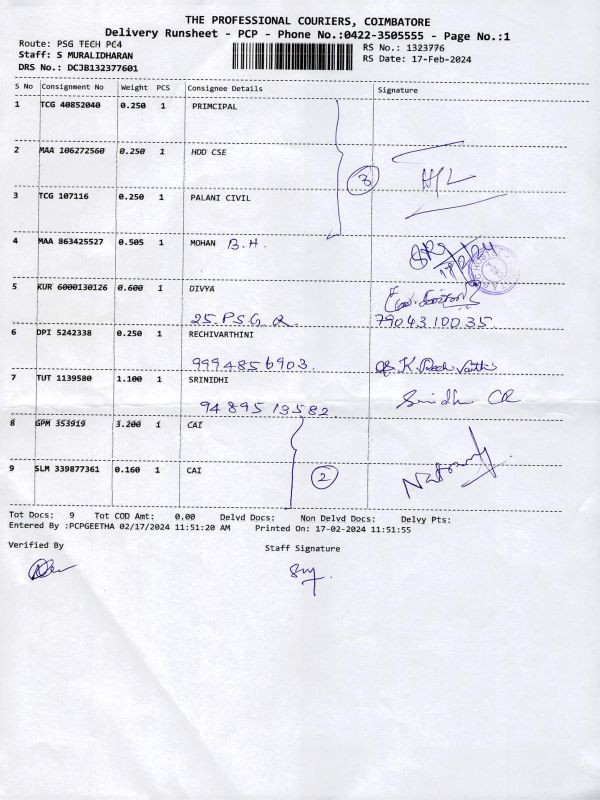 THE PROFESSIONAL COURIERS, COIMBATORE
Delivery Runsheet - PCP - Phone No.:0422-3505555 - Page No.:1
Route: PSG TECH PC4
RS No.: 1323776
Staff: S MURALIDHARAN
RS Date: 17-Feb-2024
DRS No.: DCJB132377601
S No Consignment No Weight PCS Consignee Details Signature
1 TCG 40852040 0.250 1 PRIMCIPAL
2 MAA 106272560 0.250 1 HOD CSE
3
3 TCG 107116 0.250 1 PALANI CIVIL
4 MAA 863425527 0.505 1 MOHAN B.H.
17/2/24
5 KUR 6000130126 0.600 1 DIVYA
25.P.S.G.R. 7904310035
6 DPI 5242338 0.250 1 RECHIVARTHINI
9994856903.
7 TUT 1139580 1.100 1 SRINIDHI
9489513582 Srinidhi CR
8 GPM 353919 3.200 1 CAI
9 SLM 339877361 0.160 1 CAI
2
Tot Docs: 9 Tot COD Amt: 0.00 Delvd Docs: Non Delvd Docs: Delvy Pts:
Entered By :PCPGEETHA 02/17/2024 11:51:20 AM Printed On: 17-02-2024 11:51:55
Verified By
Staff Signature